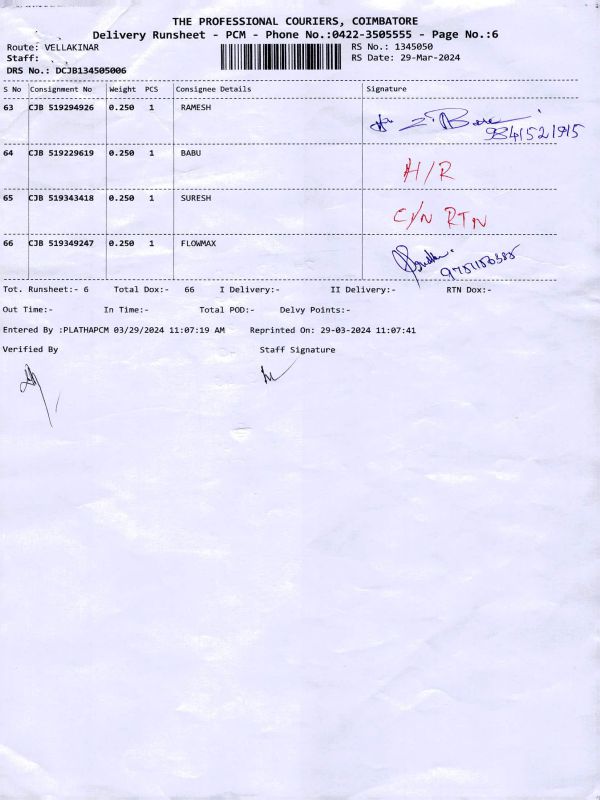 THE PROFESSIONAL COURIERS, COIMBATORE
Delivery Runsheet - PCM - Phone No.:0422-3505555 - Page No.:6
Route: VELLAKINAR RS No.: 1345050
Staff: RS Date: 29-Mar-2024
DRS No.: DCJB134505006
S No Consignment No Weight PCS Consignee Details Signature
63 CJB 519294926 0.250 1 RAMESH
9841521915
64 CJB 519229619 0.250 1 BABU H/R
65 CJB 519343418 0.250 1 SURESH C/N RTN
66 CJB 519349247 0.250 1 FLOWMAX
Tot. Runsheet:- 6 Total Dox:- 66 I Delivery:- II Delivery:- RTN Dox:-
Out Time:- In Time:- Total POD:- Delvy Points:-
Entered By :PLATHAPCM 03/29/2024 11:07:19 AM Reprinted On: 29-03-2024 11:07:41
Verified By Staff Signature